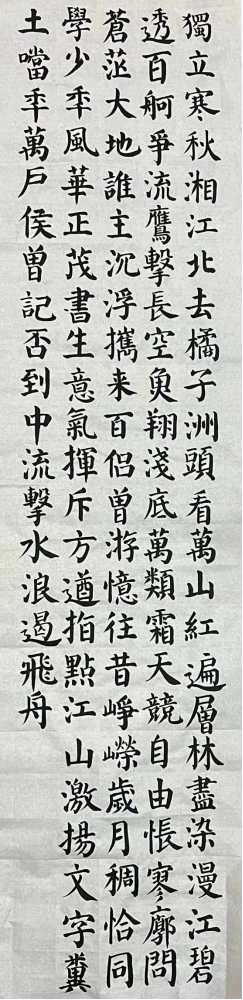 獨立寒秋湘江北去橘子洲頭看萬山紅遍層林盡染漫江碧
透百舸爭流鷹擊長空魚翔淺底萬類霜天競自由悵寥廓問
蒼茫大地誰主沉浮攜来百侣曾游憶往昔崢嶸歲月稠恰同
學少年風華正茂書生意氣揮斥方遒指點江山激揚文字糞
土當年萬戶侯曾記否到中流擊水浪遏飛舟